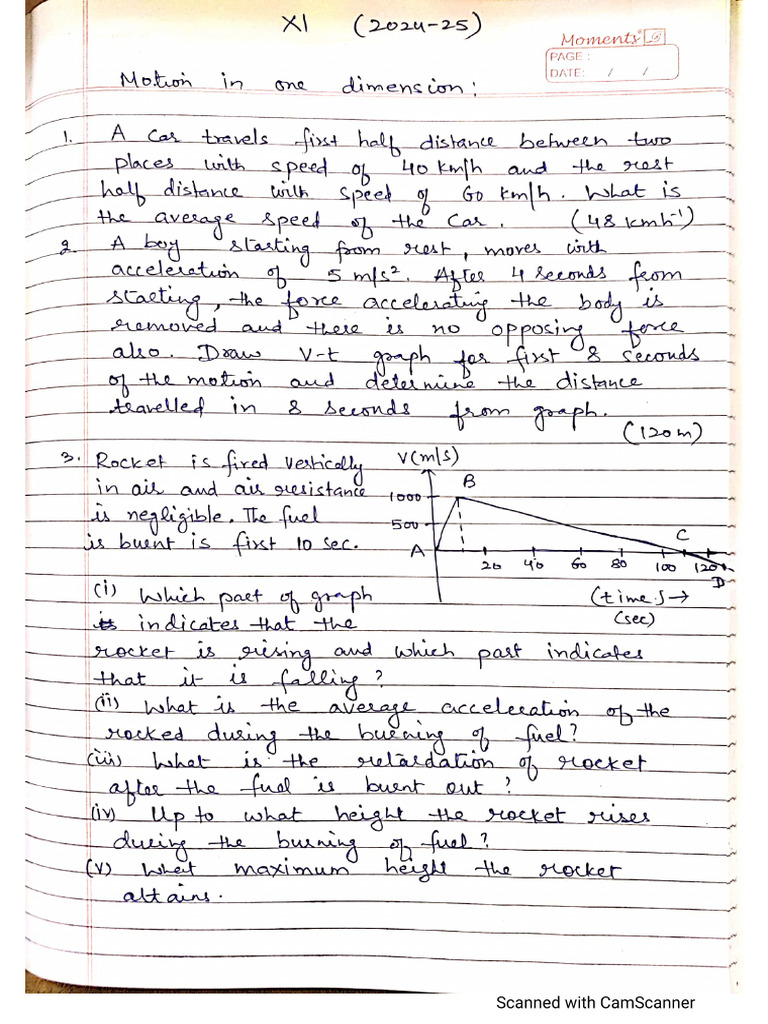 XI (2024-25)
Moments
PAGE :
DATE: / /
Motion in one dimension:
1. A car travels first half distance between two
places with speed of 40 km/h and the rest
half distance with speed of 60 km/h. What is
the average speed of the car. (48 kmh⁻¹)
2. A boy starting from rest, moves with
acceleration of 5 m/s². After 4 seconds from
starting, the force accelerating the body is
removed and there is no opposing force
also. Draw V-t graph for first 8 seconds
of the motion and determine the distance
travelled in 8 seconds from graph.
(120m)
3. Rocket is fired vertically
in air and air resistance
is negligible. The fuel
is burnt is first 10 sec.
V(m/s)
B
1000
500
A
C
20 40 60 80 100 120
D
(time.s) →
(sec)
(i) Which part of graph
indicates that the
rocket is rising and which part indicates
that it is falling?
(ii) What is the average acceleration of the
rocked during the burning of fuel?
(iii) What is the retardation of rocket
after the fuel is burnt out?
(iv) Up to what height the rocket rises
during the burning of fuel?
(v) What maximum height the rocket
attains.
Scanned with CamScanner